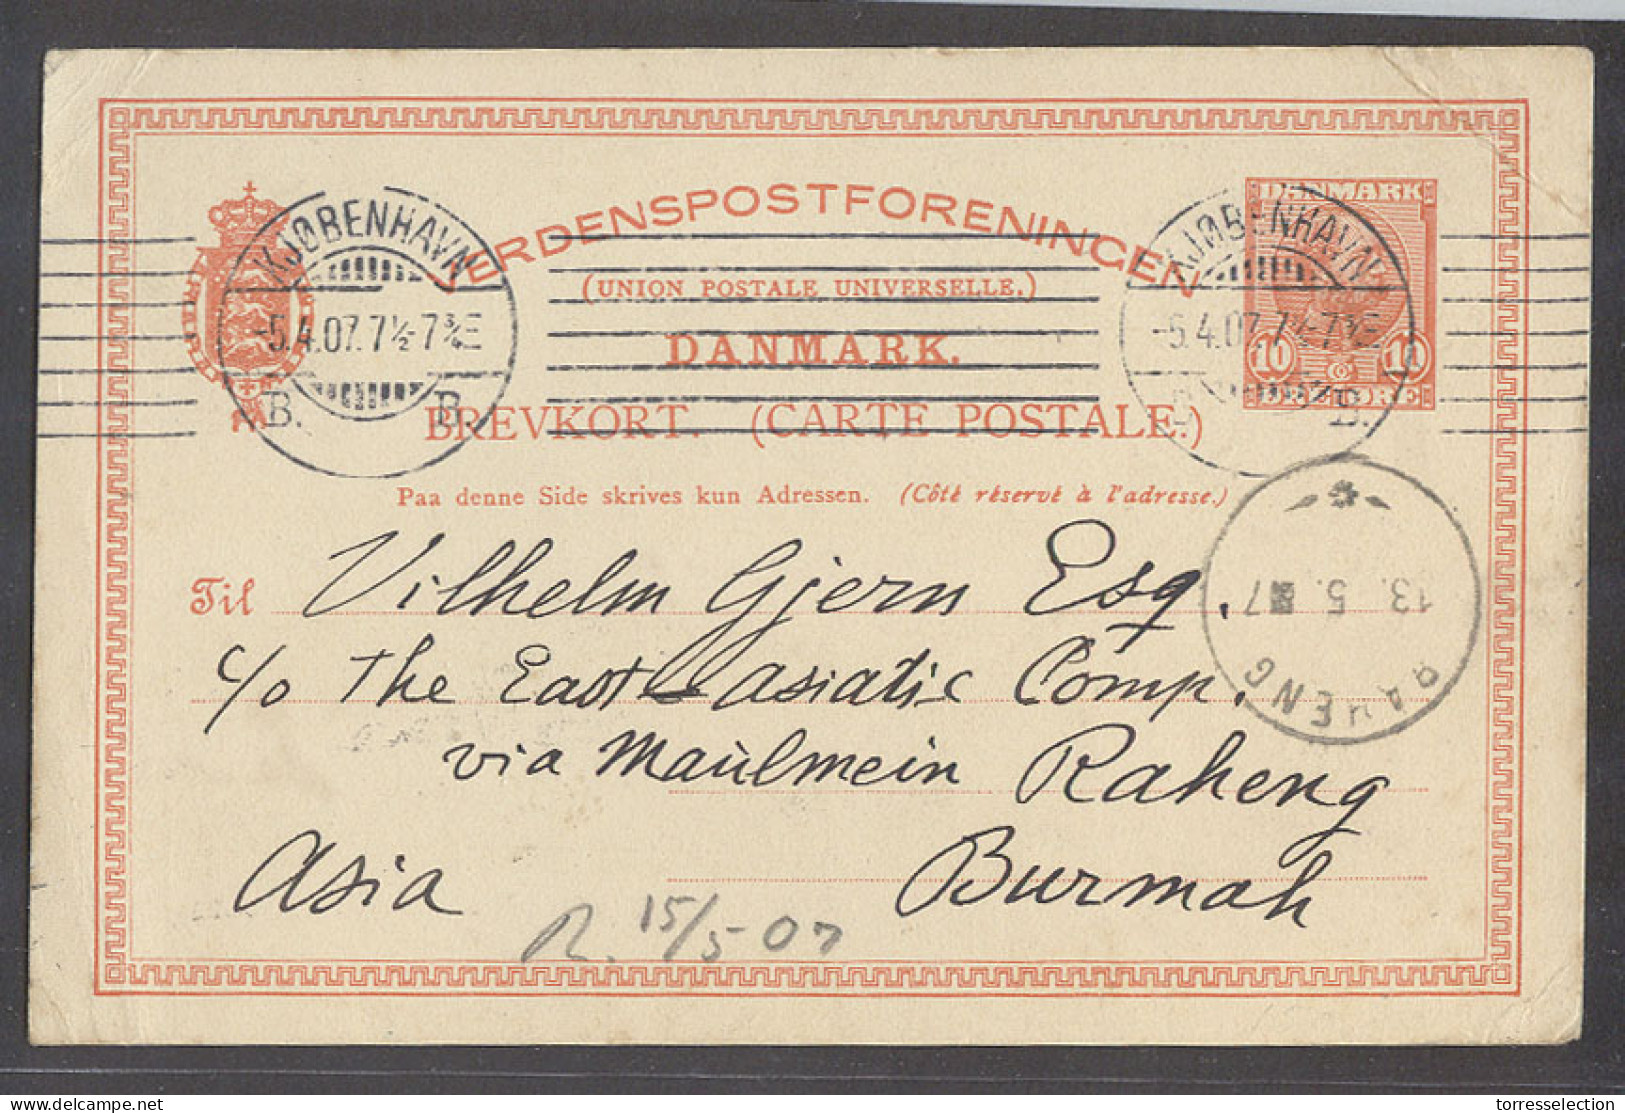 VERDENSPOSTFORENINGEN
(UNION POSTALE UNIVERSELLE.)
DANMARK.
BREVKORT. (CARTE POSTALE.)
Paa denne Side skrives kun Adressen. (Côté réservé à l'adresse.)
KJØBENHAVN
-5.4.07. 7½-7¾E
B. B.
KJØBENHAVN
-5.4.07. 7½-7¾E
B.
DANMARK
10 10
ØRE
Til Vilhelm Gjern Esq.
c/o The East asiatic Comp.
via Maulmein Raheng
Asia Burmah
13. 5. 07
RAHENG
R. 15/5 07
delcampe.net
torresselection